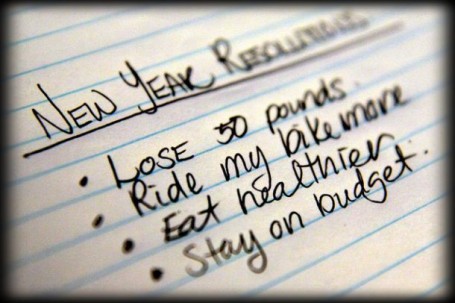 NEW YEAR RESOLUTIONS
• LOSE 30 pounds.
• Ride my bike more
• Eat healthier
• Stay on budget.